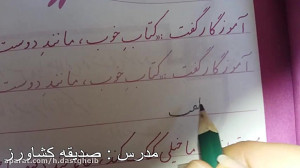 آموزگار گفت : «کتاب خوب، مانند دوست
آموزگار گفت : «کتاب خوب، مانند دوست
ما خیلی کمک
مدرس : صدیقه کشاورز
aparat.com/h.dastgheib